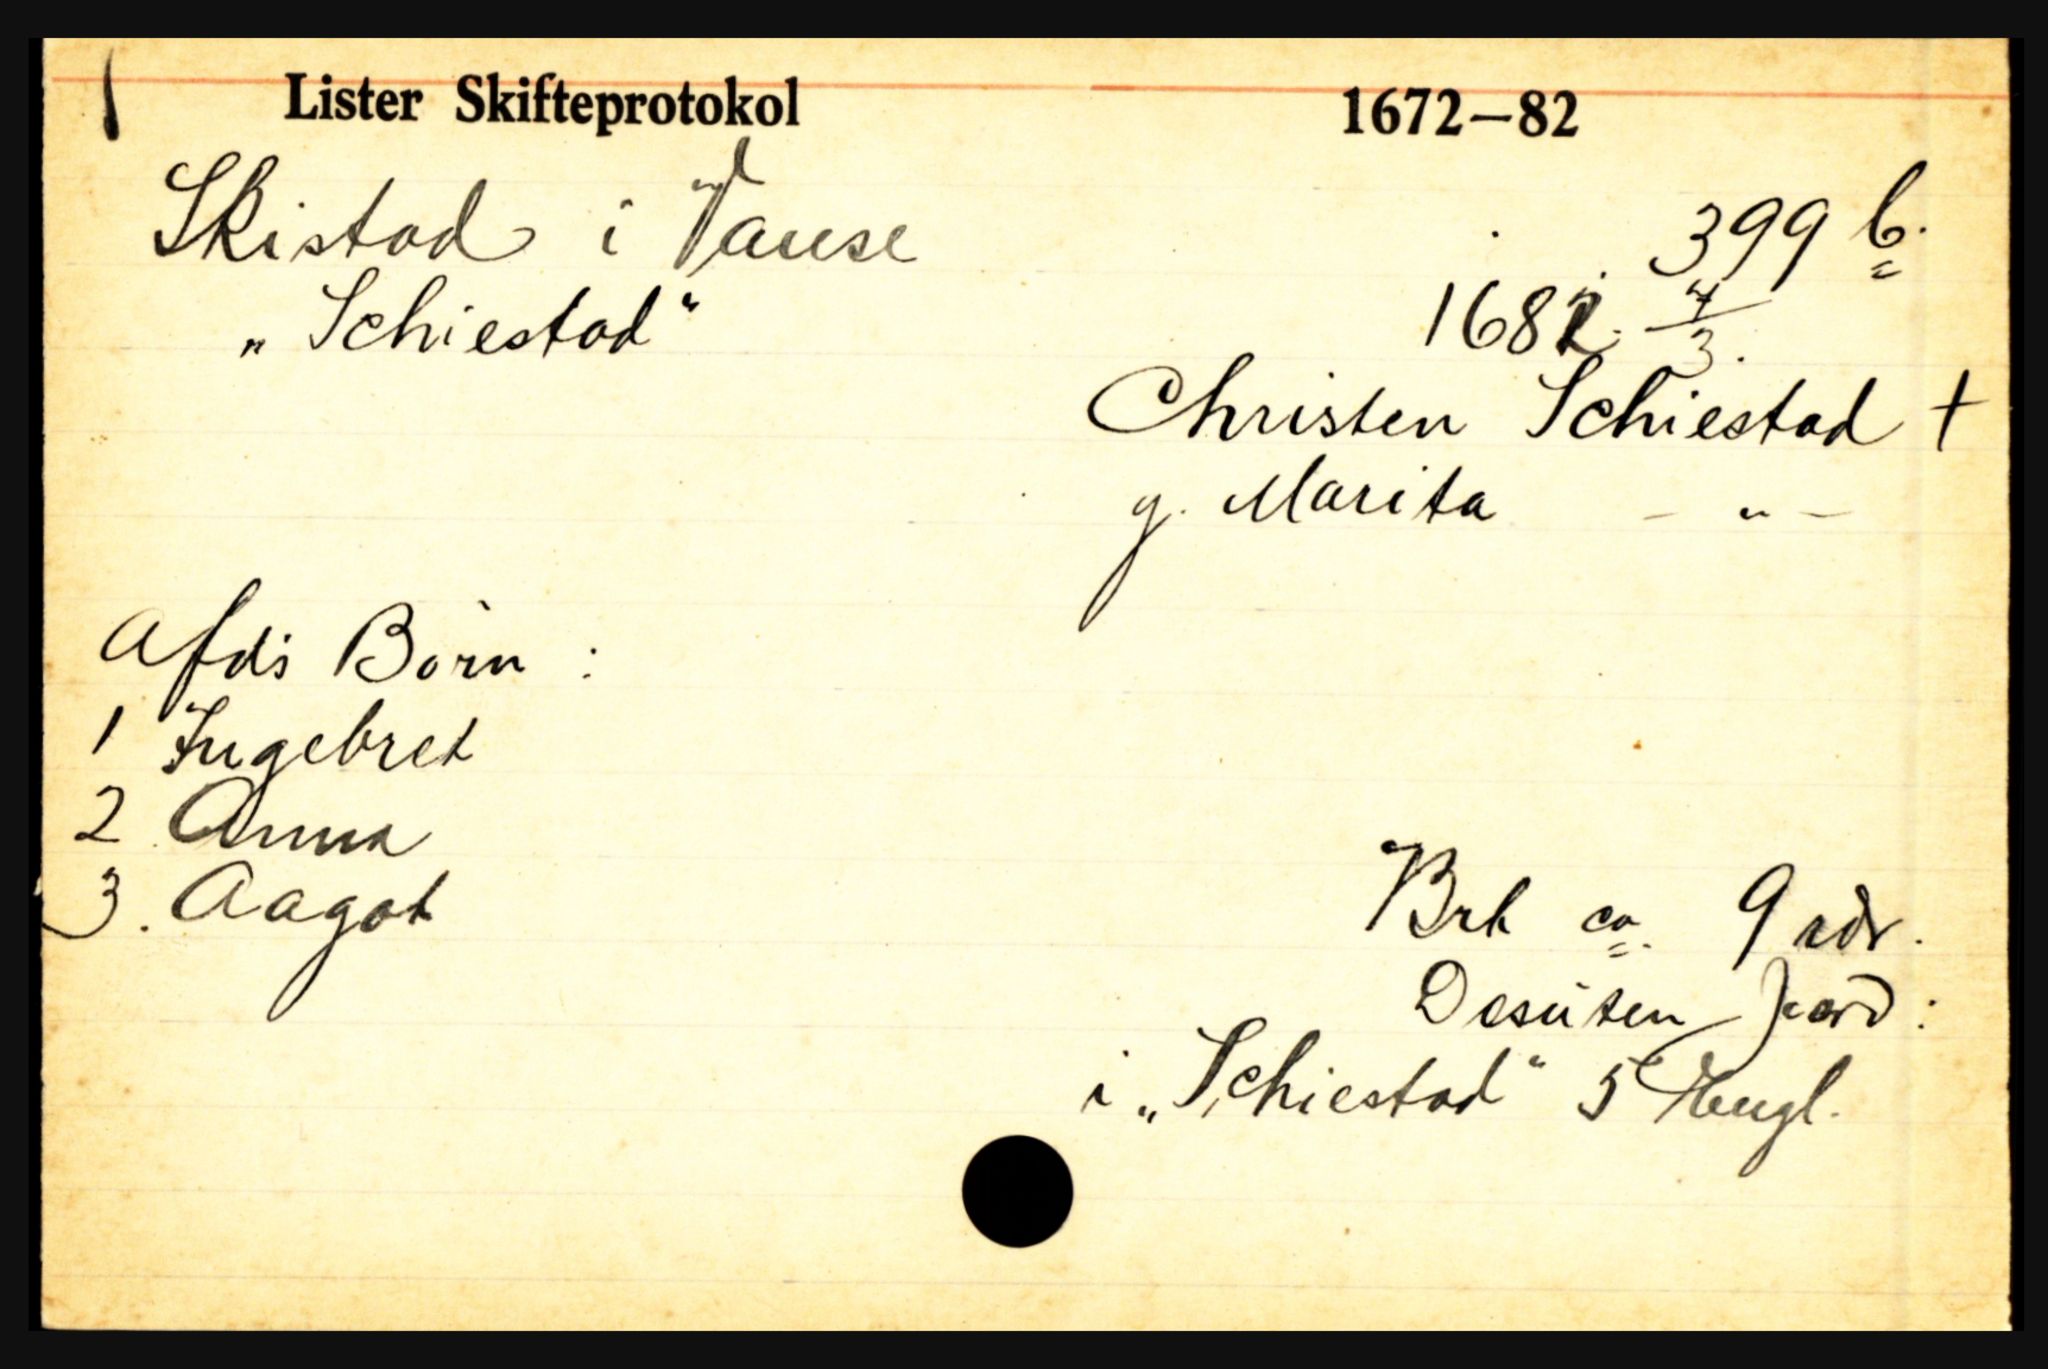 Lister Skifteprotokol 1672–82
Skistad i Vanse 399 b.
"Schiestad" 1682 4/3.
Christen Schiestad +
g. Marita - " -
Afdis Børn :
1 Ingebret
2 Anna
3. Aagot
Brt ca. 9 rdr.
Desuten jord :
i "Schiestad" 5 Engl.